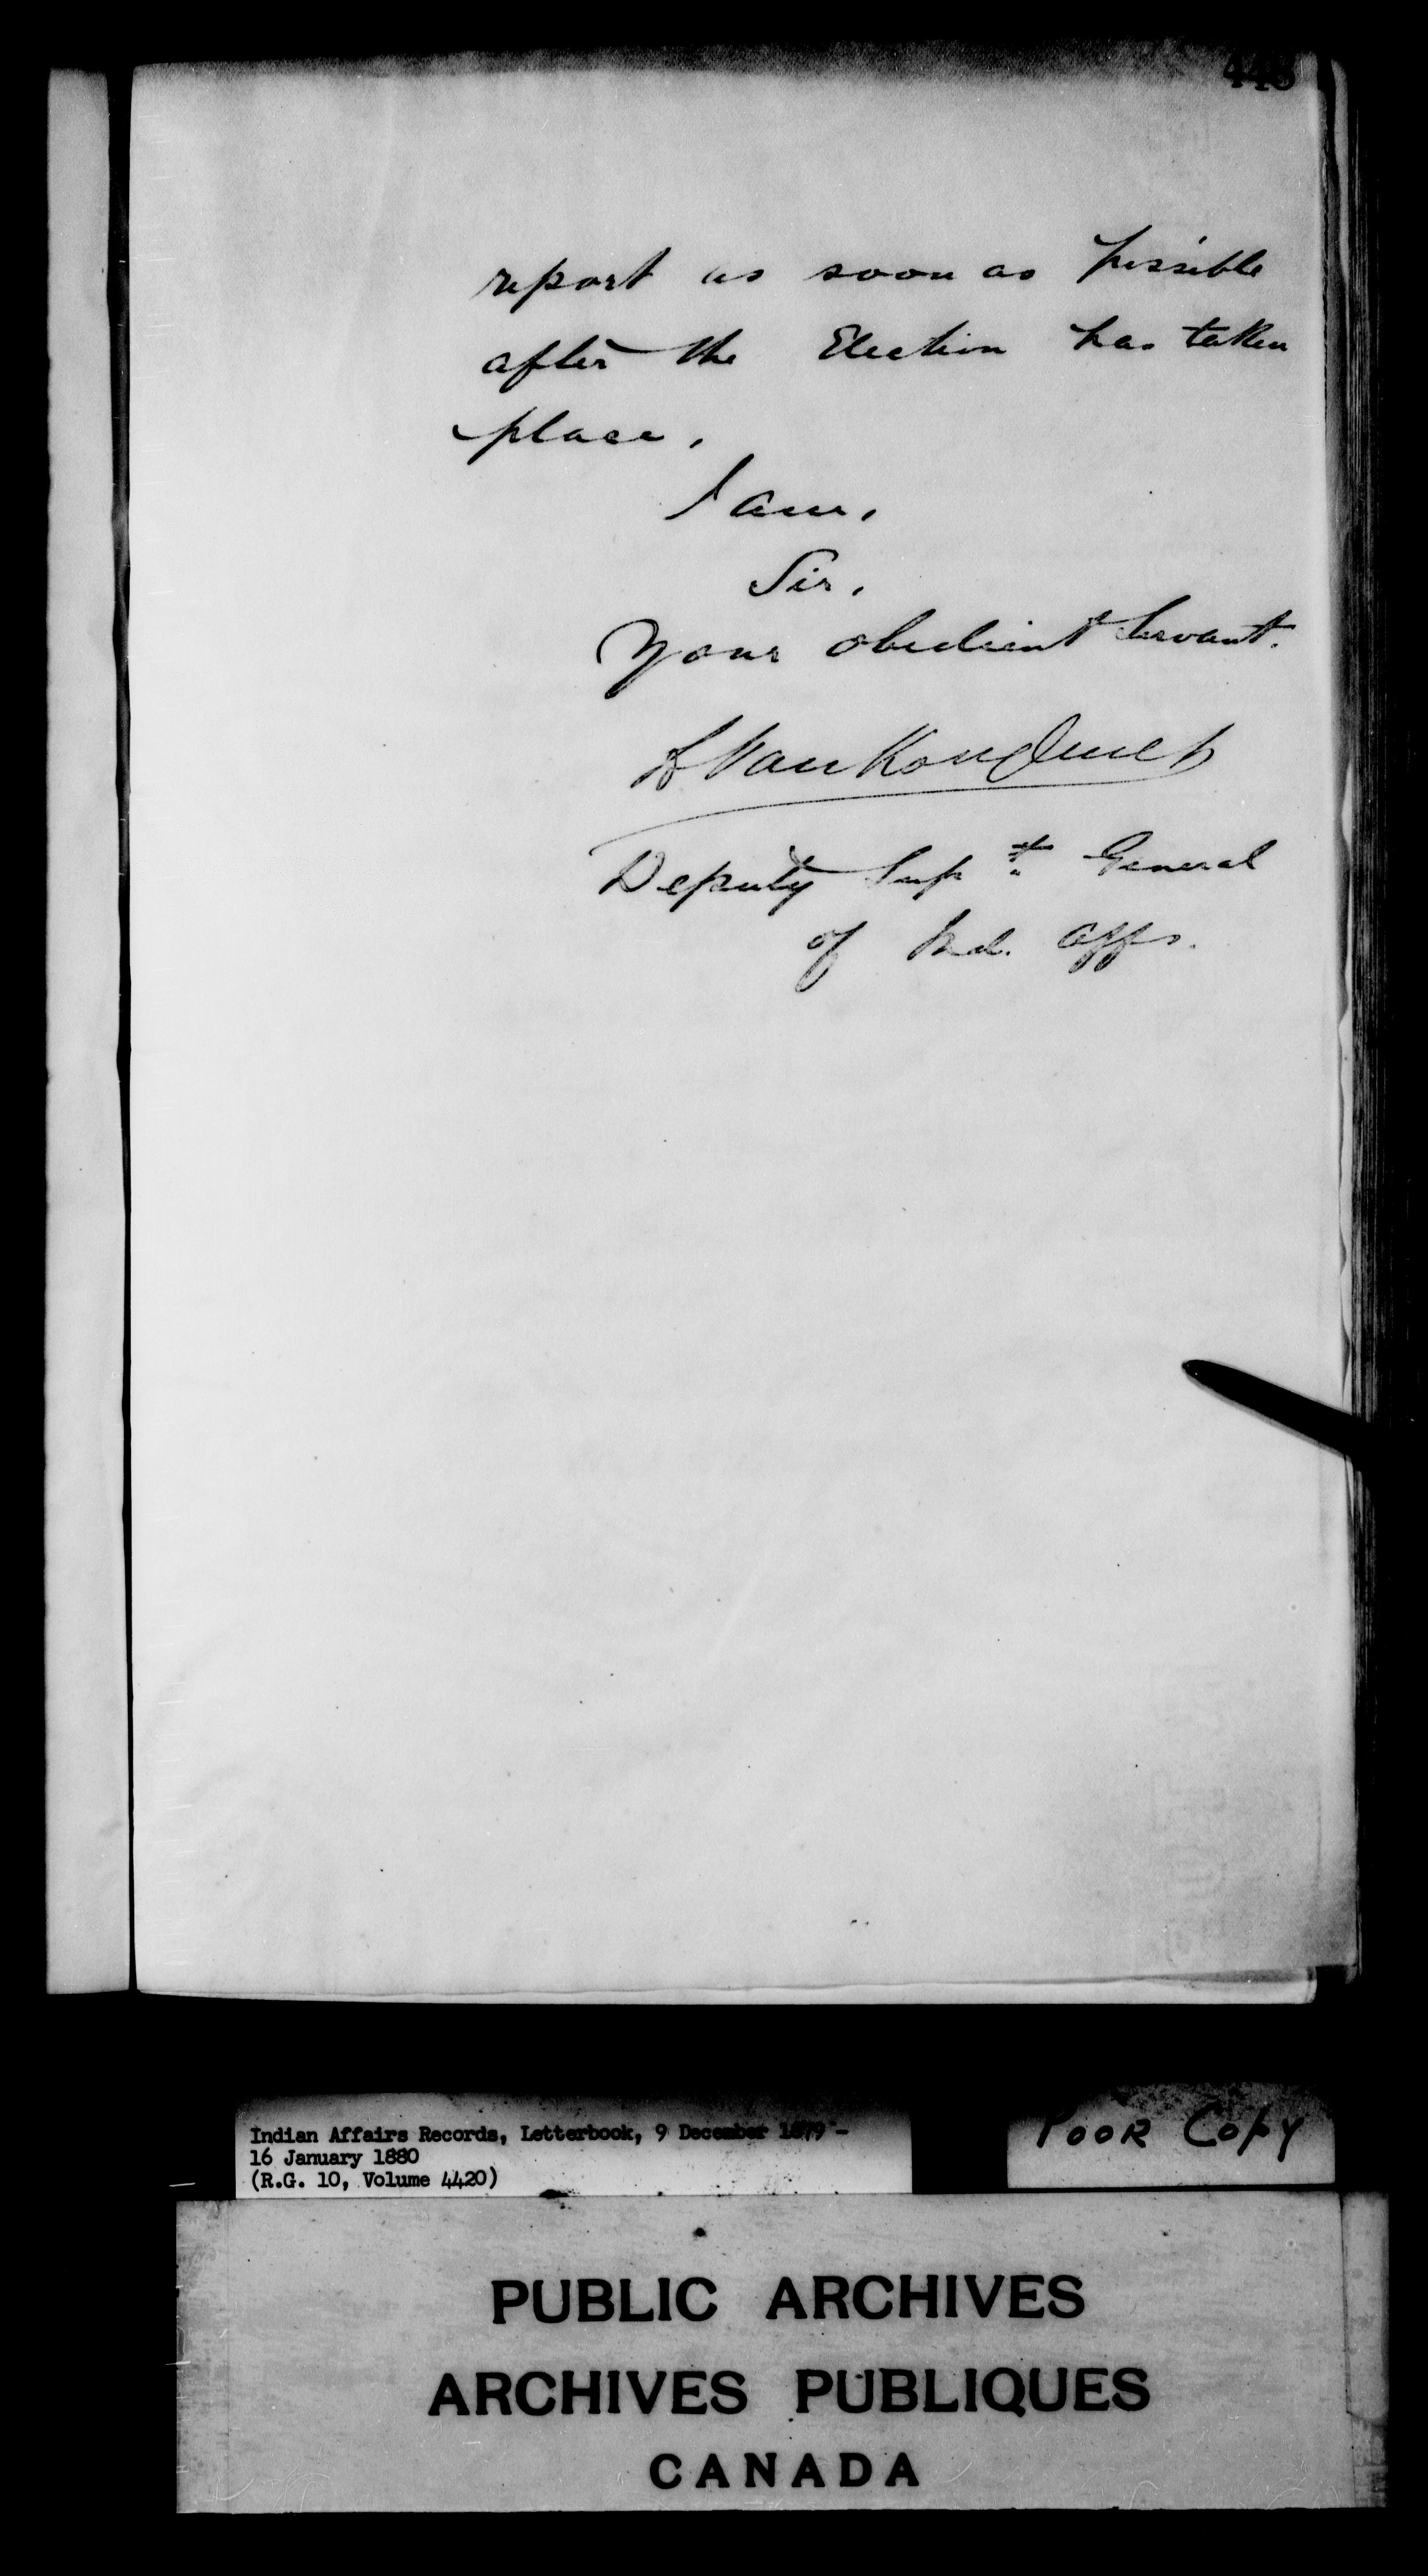 443
report as soon as possible
after the Election has taken
place.
I am,
Sir,
Your obedient Servant.
L VanKoughnet
Deputy Supt. General
of Ind. Affs.
Indian Affairs Records, Letterbook, 9 December 1879 -
16 January 1880
(R.G. 10, Volume 4420)
POOR COPY
PUBLIC ARCHIVES
ARCHIVES PUBLIQUES
CANADA